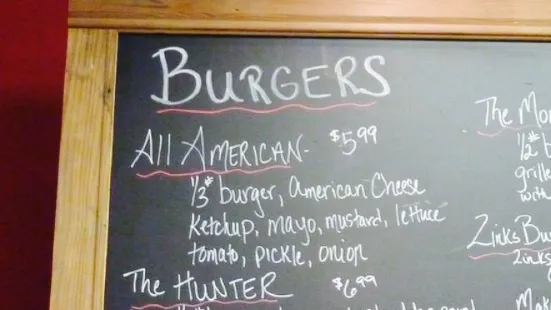 BURGERS
All AMERICAN- $5.99
1/3# burger, American Cheese
Ketchup, mayo, mustard, lettuce
tomato, pickle, onion
The HUNTER $6.99
The
1/2#
grille
with
Zinks Bu
Zinks